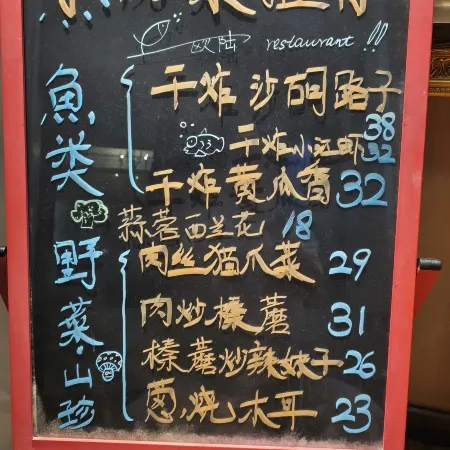 欧陆 restaurant!!
魚类
干炸沙胴路子 38
干炸小江虾 32
干炸黄瓜香 32
蒜蓉西兰花 18
野菜·山珍
肉丝猫爪菜 29
肉炒榛蘑 31
榛蘑炒辣妹子 26
葱烧木耳 23